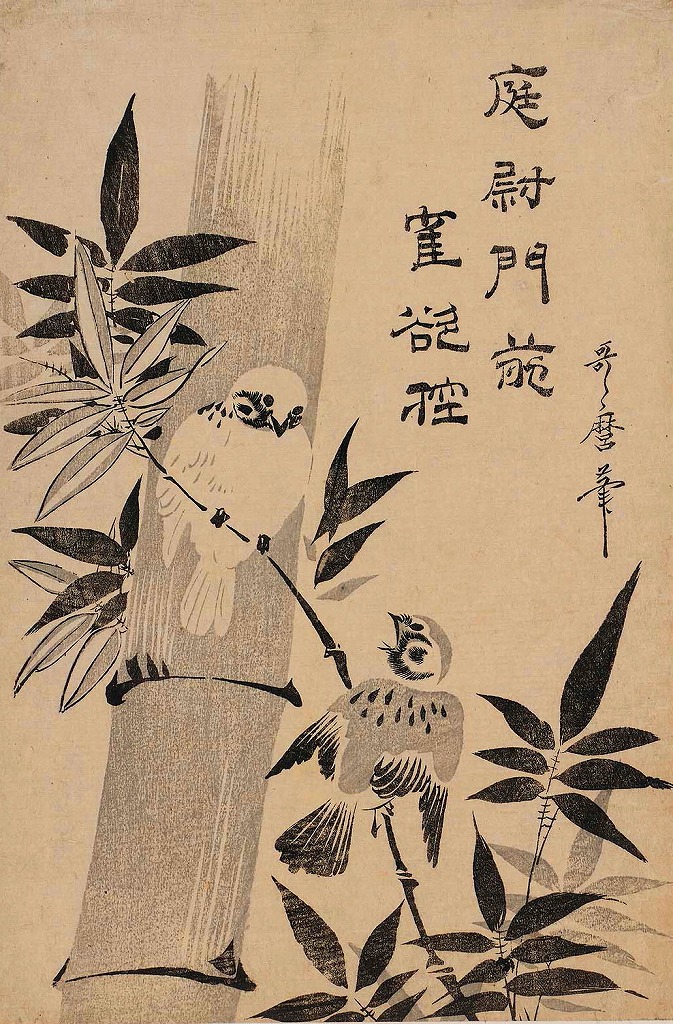 庭尉門前
雀欲
哥〻麿筆